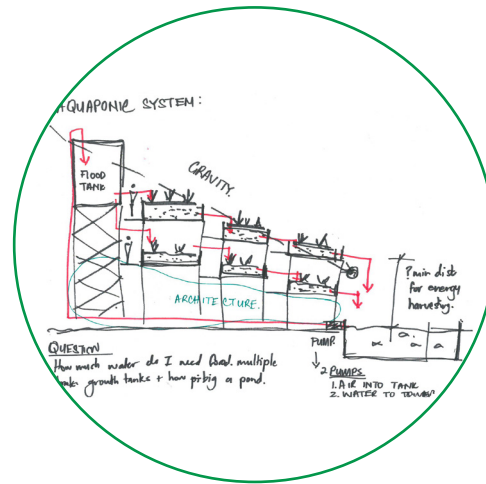 AQUAPONIC SYSTEM:
FLOOD
TANK
GRAVITY.
ARCHITECTURE.
? min dist
for energy
harvesting.
PUMP
QUESTION
How much water do I need flood. multiple
growth tanks + how big a pond.
2 PUMPS
1. AIR INTO TANK
2. WATER TO TOWER